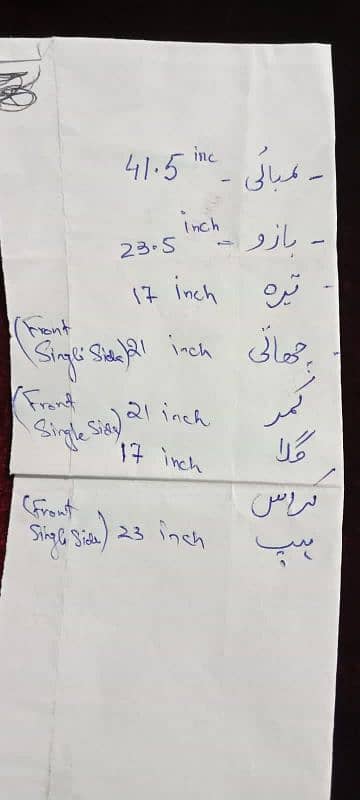 - لمبائی - 41.5 inc
- بازو = 23.5 inch
- تیرہ 17 inch
- چھاتی 21 inch (Front Singli Side)
کمر 21 inch (Front Single Side)
گلا 17 inch
کراس
ہیپ 23 inch (Front Singli Side)